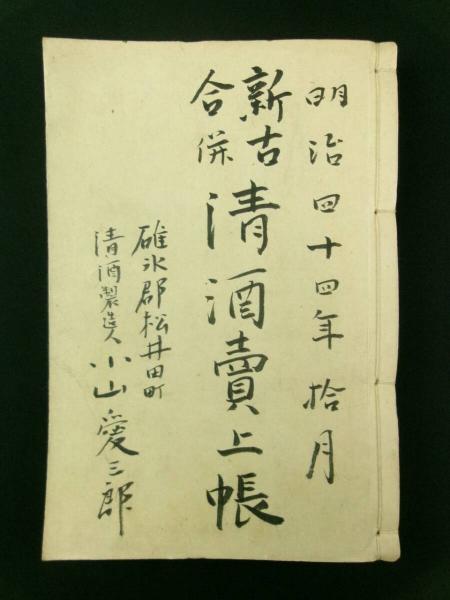 明治四十四年拾月
新古
合併
清酒賣上帳
碓氷郡松井田町
清酒製造人
小山愛三郎